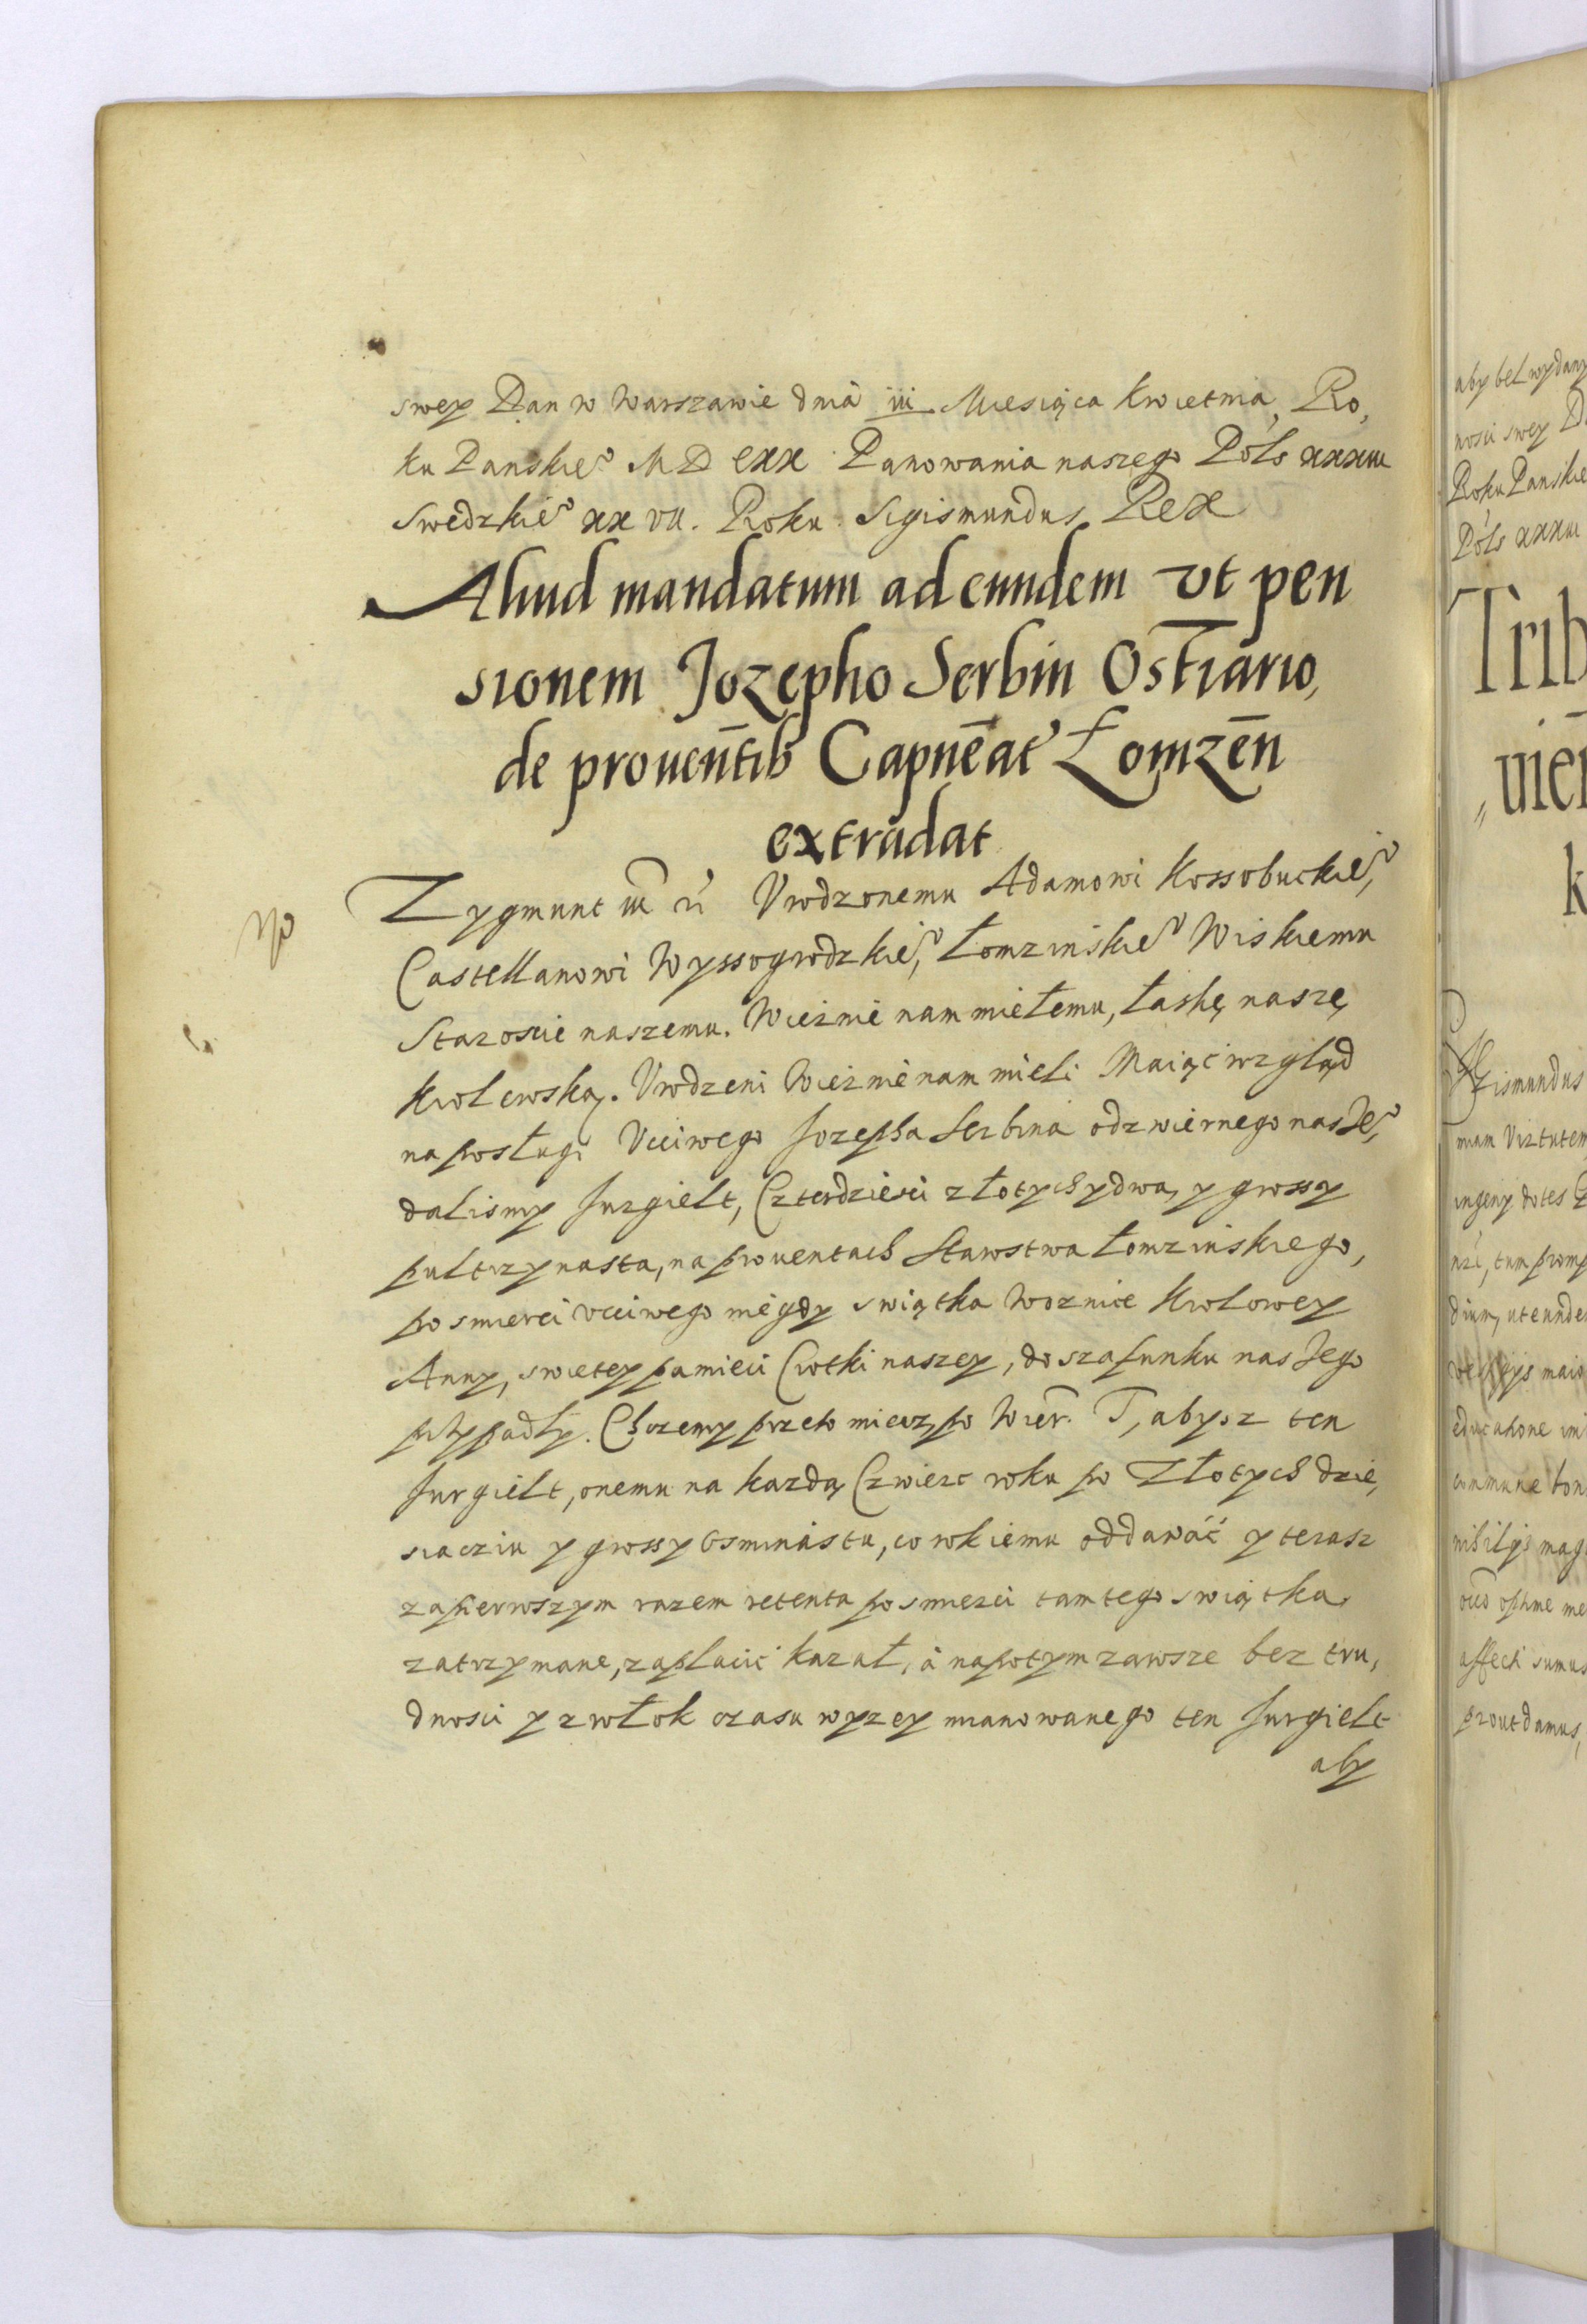 swey Dan w Warszawie dnia iii Miesiąca Kwietnia, Ro,
ku Panskieº MDCXX Panowania naszego Pols xxxiii
Swedzkieº xxvii. Roku. Sigismundus Rex
Aliud mandatum ad eundem vt pen
sionem Jozepho Serbin Ostiario,
de prouentib Capneat Łomzen
extradat
Zygmunt iii Vrodzonemu Adamowi Kossobuckieº,
Castellanowi Wyssogrodzkieº, Łomzinskieº Wiskiemu
Staroscie naszemu. Wiernie nam miłemu, łaskę naszę
Krolewską. Vrodzeni Wiernie nam mieli Maiąc wzgląd
na posługi Vcciwego Jozepha Serbina odzwiernego naszeº,
dalismy Jurgielt, Czterdziesci złotych y dwa, y groszy
pultrzynasta, na prouentach Starostwa Łomzinskiego,
po smierci vcciwego niegdy Swiątka Woznice Krolowey
Anny, swietey pamieci Ciotki naszey, do szafunku naszego
przypadły. Chcemy przeto miecz po Wier. T, abysz ten
Jurgielt, onemu na kazdą Czwierc roku po Złotych dzie,
siaciu y groszy Osminastu, co rok iemu oddawać y terasz
za pierwszym razem retenta po smierci tamtego Swiątka,
zatrzymane, zapłacić kazał, á napotym zawsze bez tru,
dnosci y zwłok czasu wyzey mianowanego ten Jurgielt
aby
aby bel wydany
nosci swey
Roku Panskie
Pols xxxiii
Trib
k
Sigismundus
Virtutem
ingeny dotes
maio
educatione
commune bon
affecti sumus
prout damus,